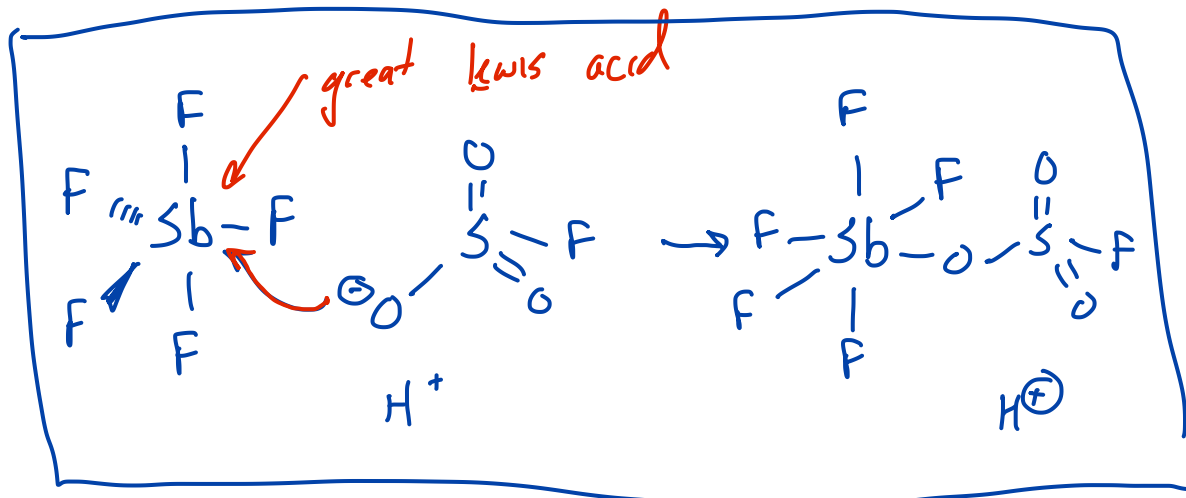 great lewis acid
F
F
Sb
F
F
F
⊖
O
S
O
F
O
H⁺
→
F
F
F
Sb
O
S
O
F
O
F
F
H⊕